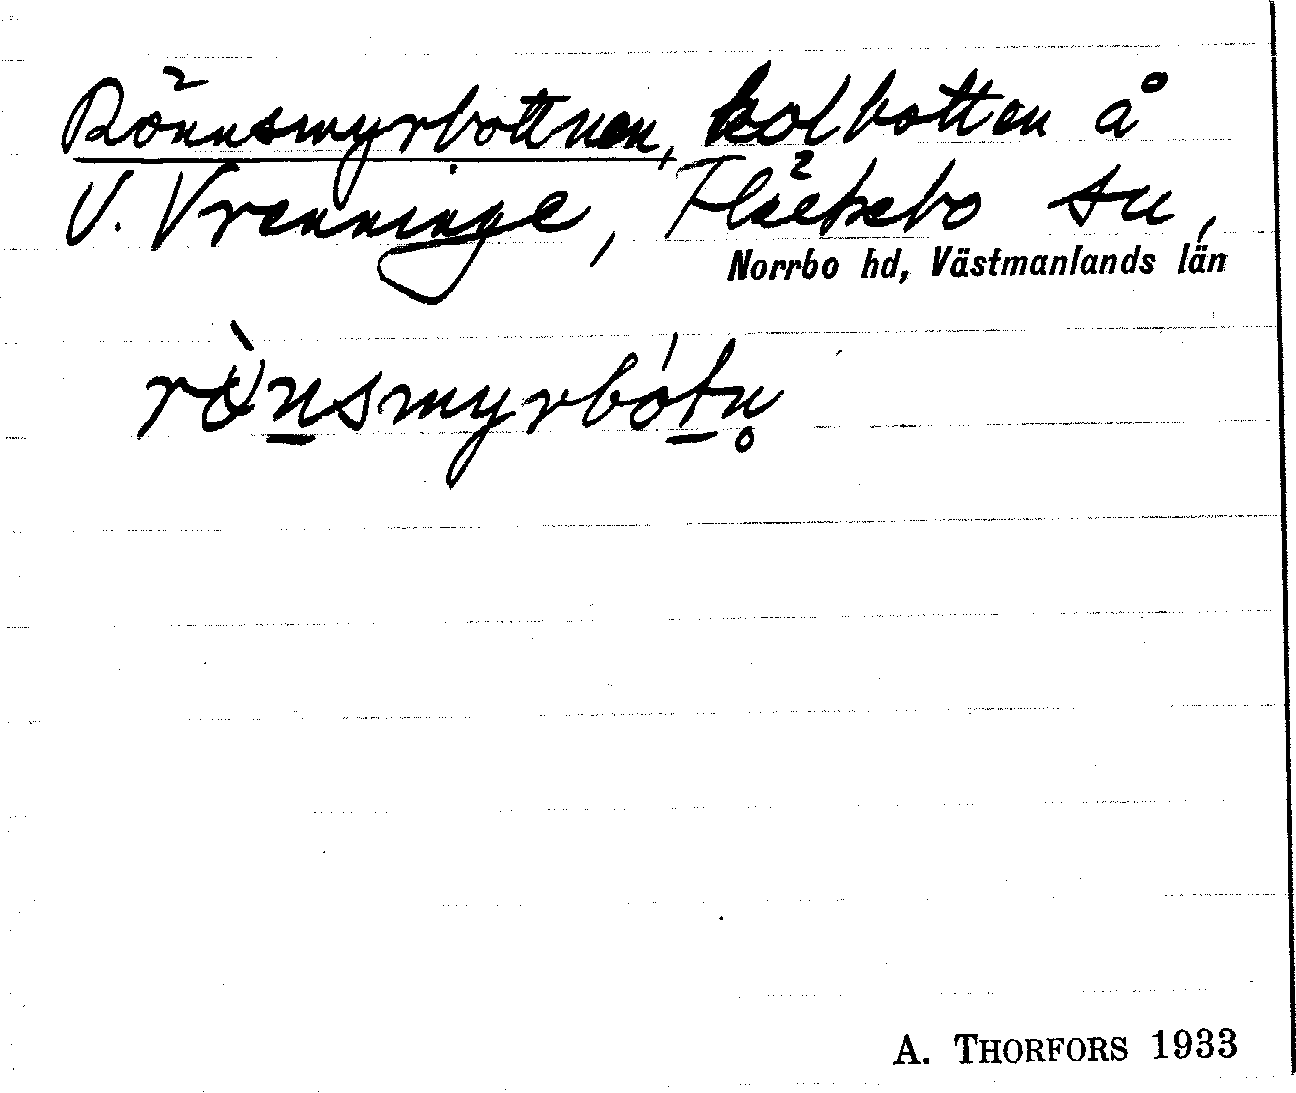 Rönnsmyrbottnen, kolbotten å
V. Vrenninge, Fläckebo sn,
Norrbo hd, Västmanlands län
rö̀n̲smyrbót̲n̥
A. THORFORS 1933